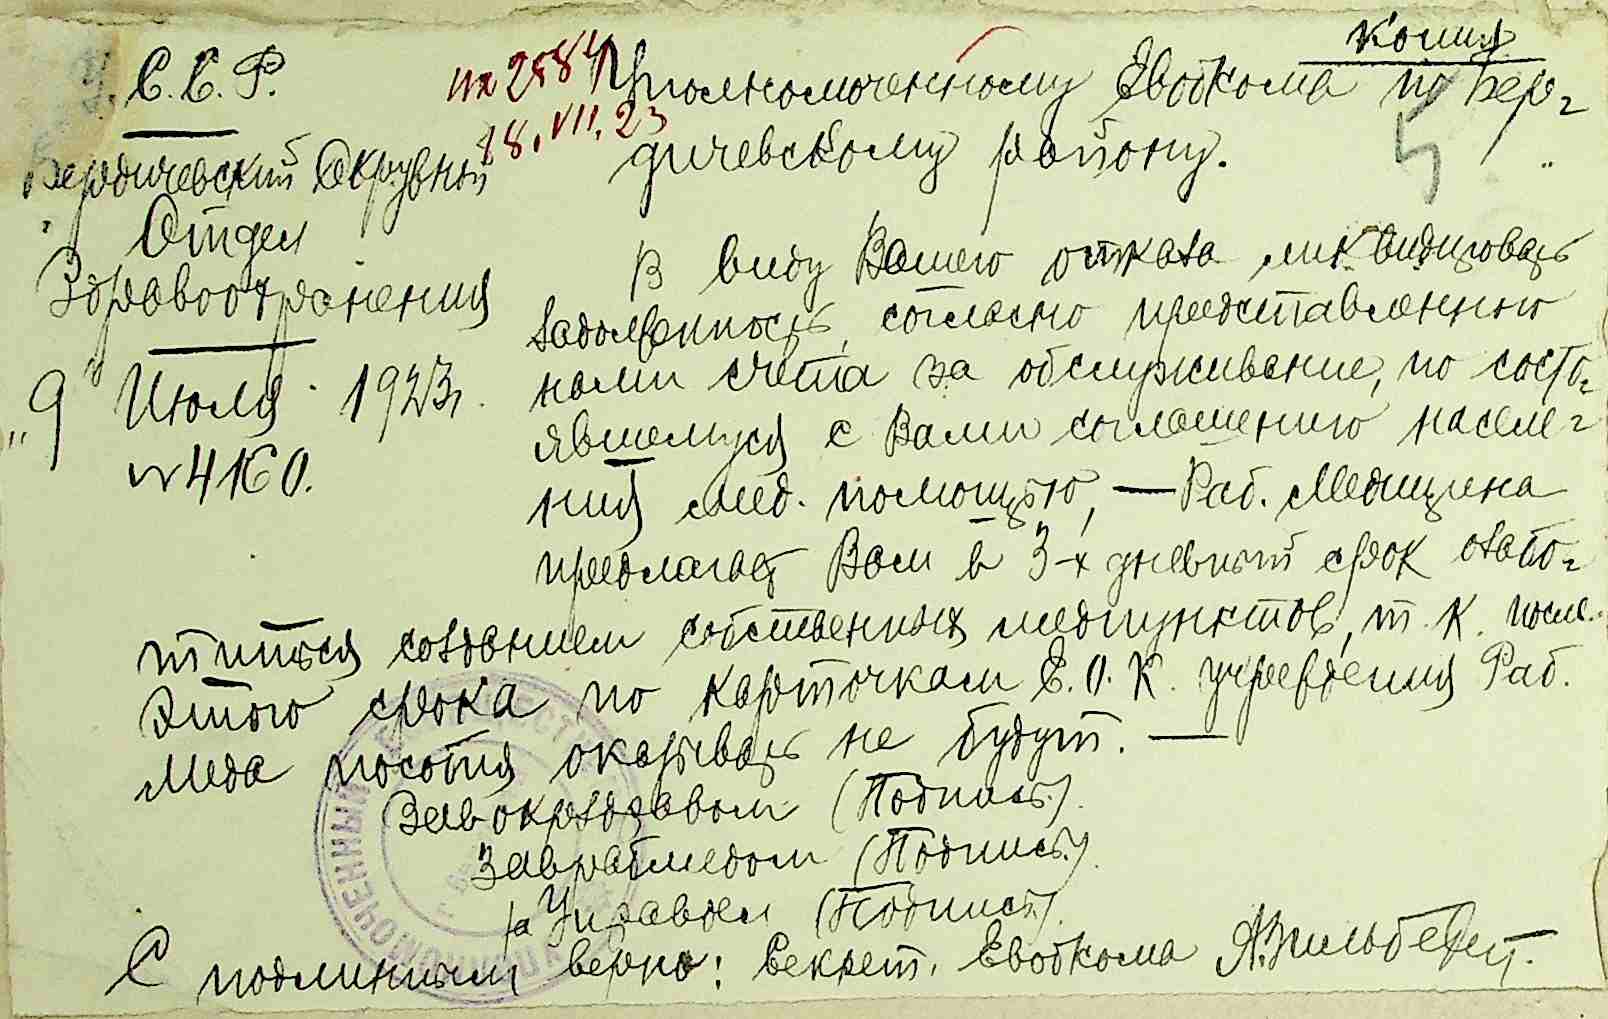 Копия
У. С. С. Р.
Бердичевский Окружной
Отдел
Здравоохранения
"9" Июля 1923 г.
№ 4160.
2584
18. VII. 23
Уполномоченному Евобкома по Бер-
дичевскому району.
В виду Вашего отказа ликвидировать
задолженность, согласно представленного
нами счета за обслуживание, по состо-
явшемуся с Вами соглашению населе-
ния мед. помощью, — Раб. Медицина
предлагает Вам в 3-х дневный срок озабо-
титься созданием собственных медпунктов, т. к. после
этого срока по карточкам Е. О. К. учреждения Раб.
Меда пособия оказывать не будут. —
Завокрздравом (Подпись).
Завработмедом (Подпись).
за Управдел (Подпись).
С подлинным верно: Секрет. Евобкома А. Зильберт.